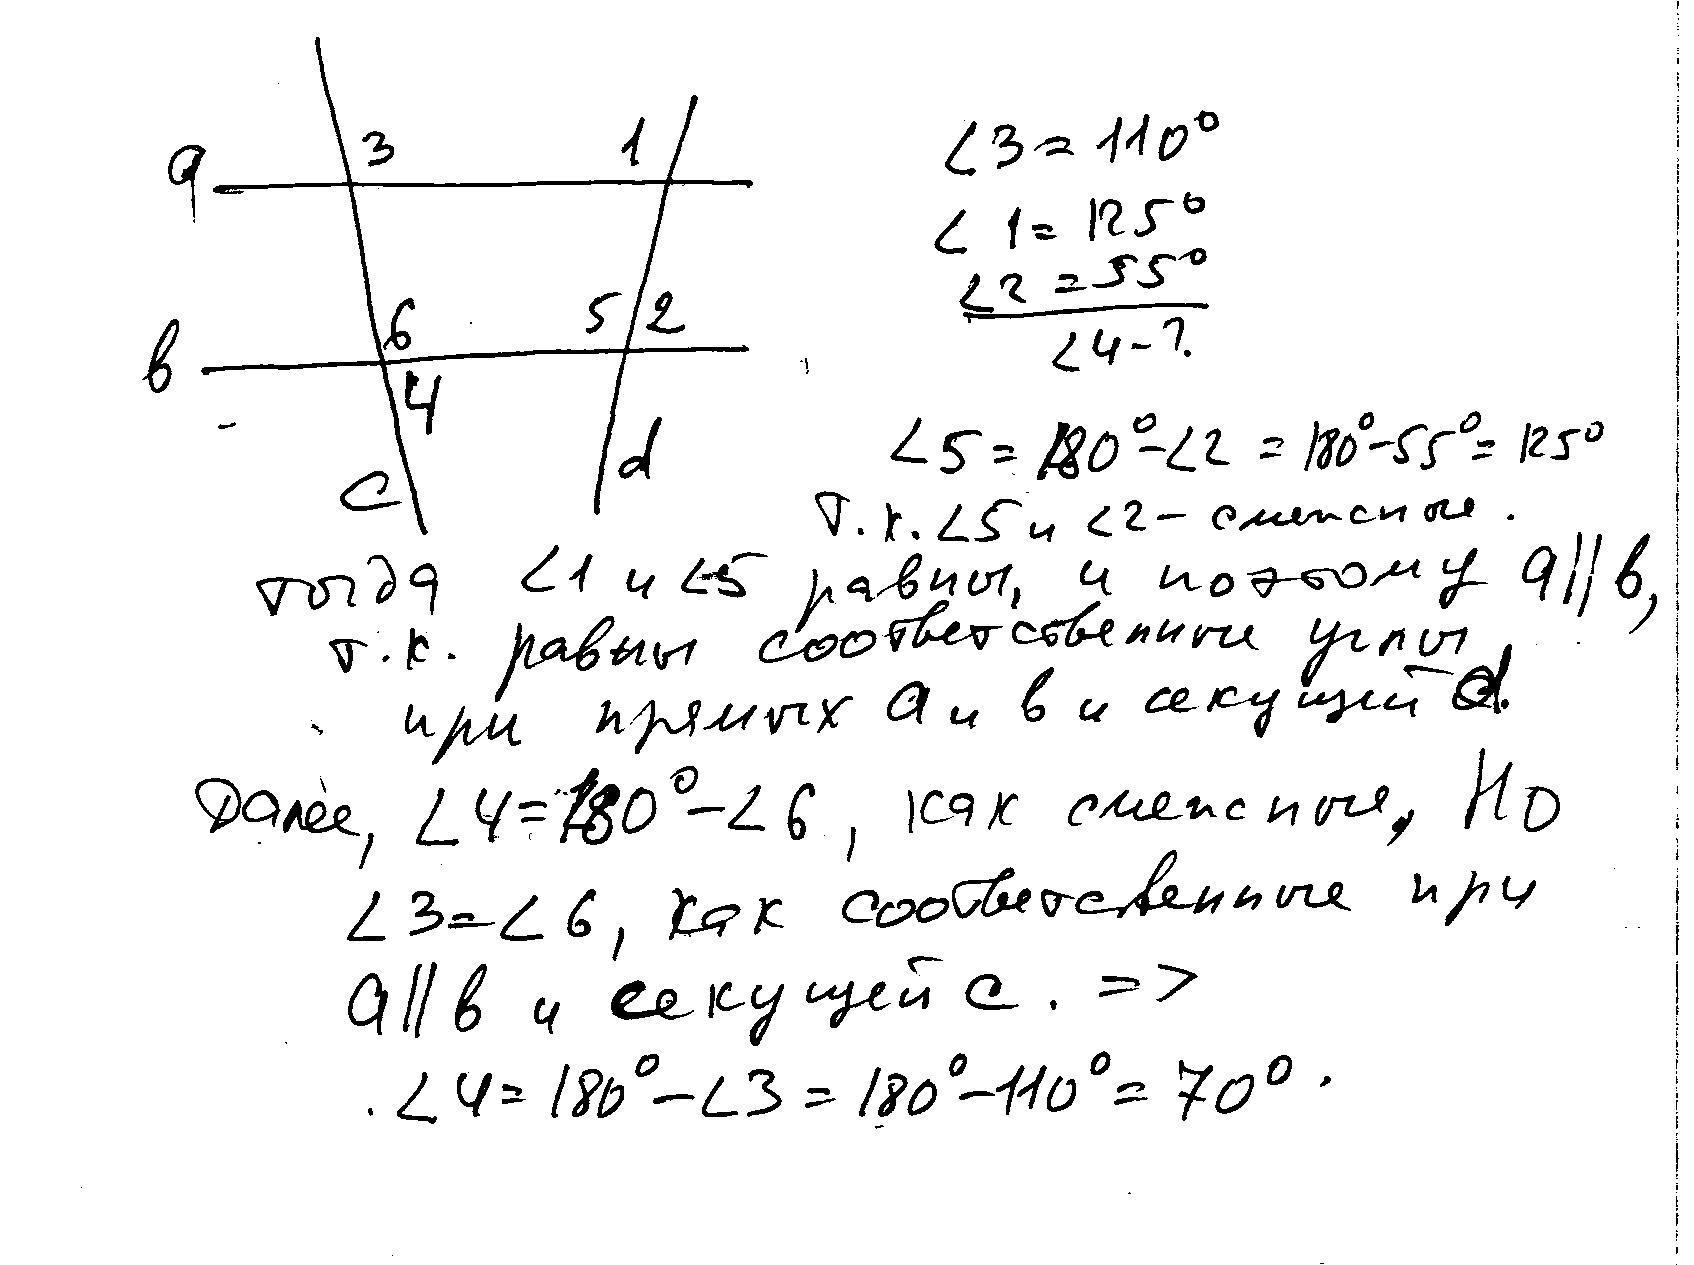 3 1
a
6 5 2
в
4
c d
∠3=110°
∠1=125°
∠2=55°
∠4-?
∠5=180°-∠2=180°-55°=125°
т.к. ∠5 и ∠2-смежные.
тогда ∠1 и ∠5 равны, и поэтому a||в,
т.к. равны соответственные углы
при прямых a и в и секущей d.
Далее, ∠4=180°-∠6, как смежные, Но
∠3=∠6, как соответственные при
a||в и секущей c. =>
∠4=180°-∠3=180°-110°=70°.